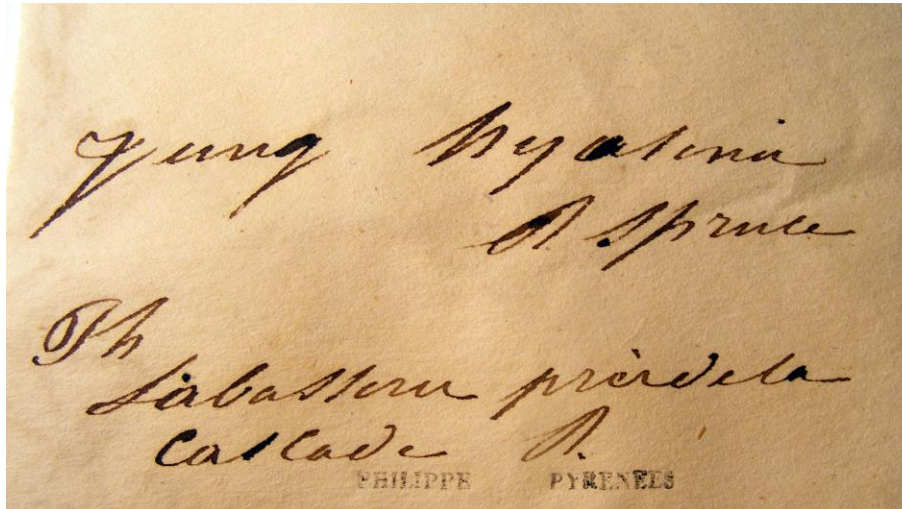 Jung hyalina
R. Spruce
Ph
Labassere près de la
Cascade R.
PHILIPPE PYRENEES